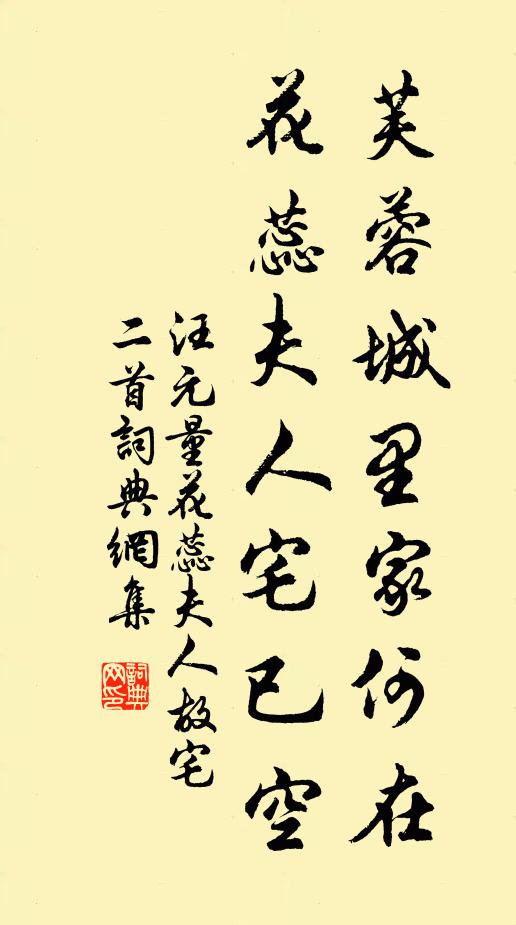 芙蓉城里家何在
花蕊夫人宅已空
汪元量花蕊夫人故宅
二首詞典網集
詞典網印